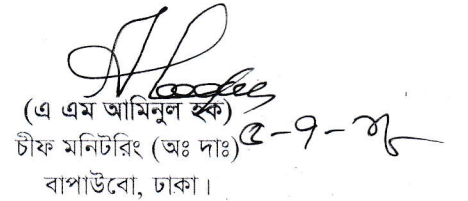 (এ এম আমিনুল হক)
চীফ মনিটরিং (অঃ দাঃ)
বাপাউবো, ঢাকা।